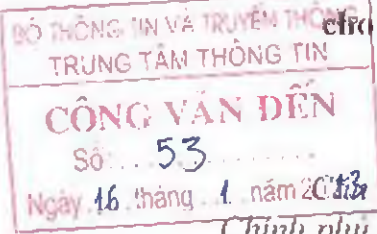 BỘ THÔNG TIN VÀ TRUYỀN THÔNG
TRUNG TÂM THÔNG TIN
CÔNG VĂN ĐẾN
Số: 53
Ngày 16 tháng 1 năm
Chính phủ